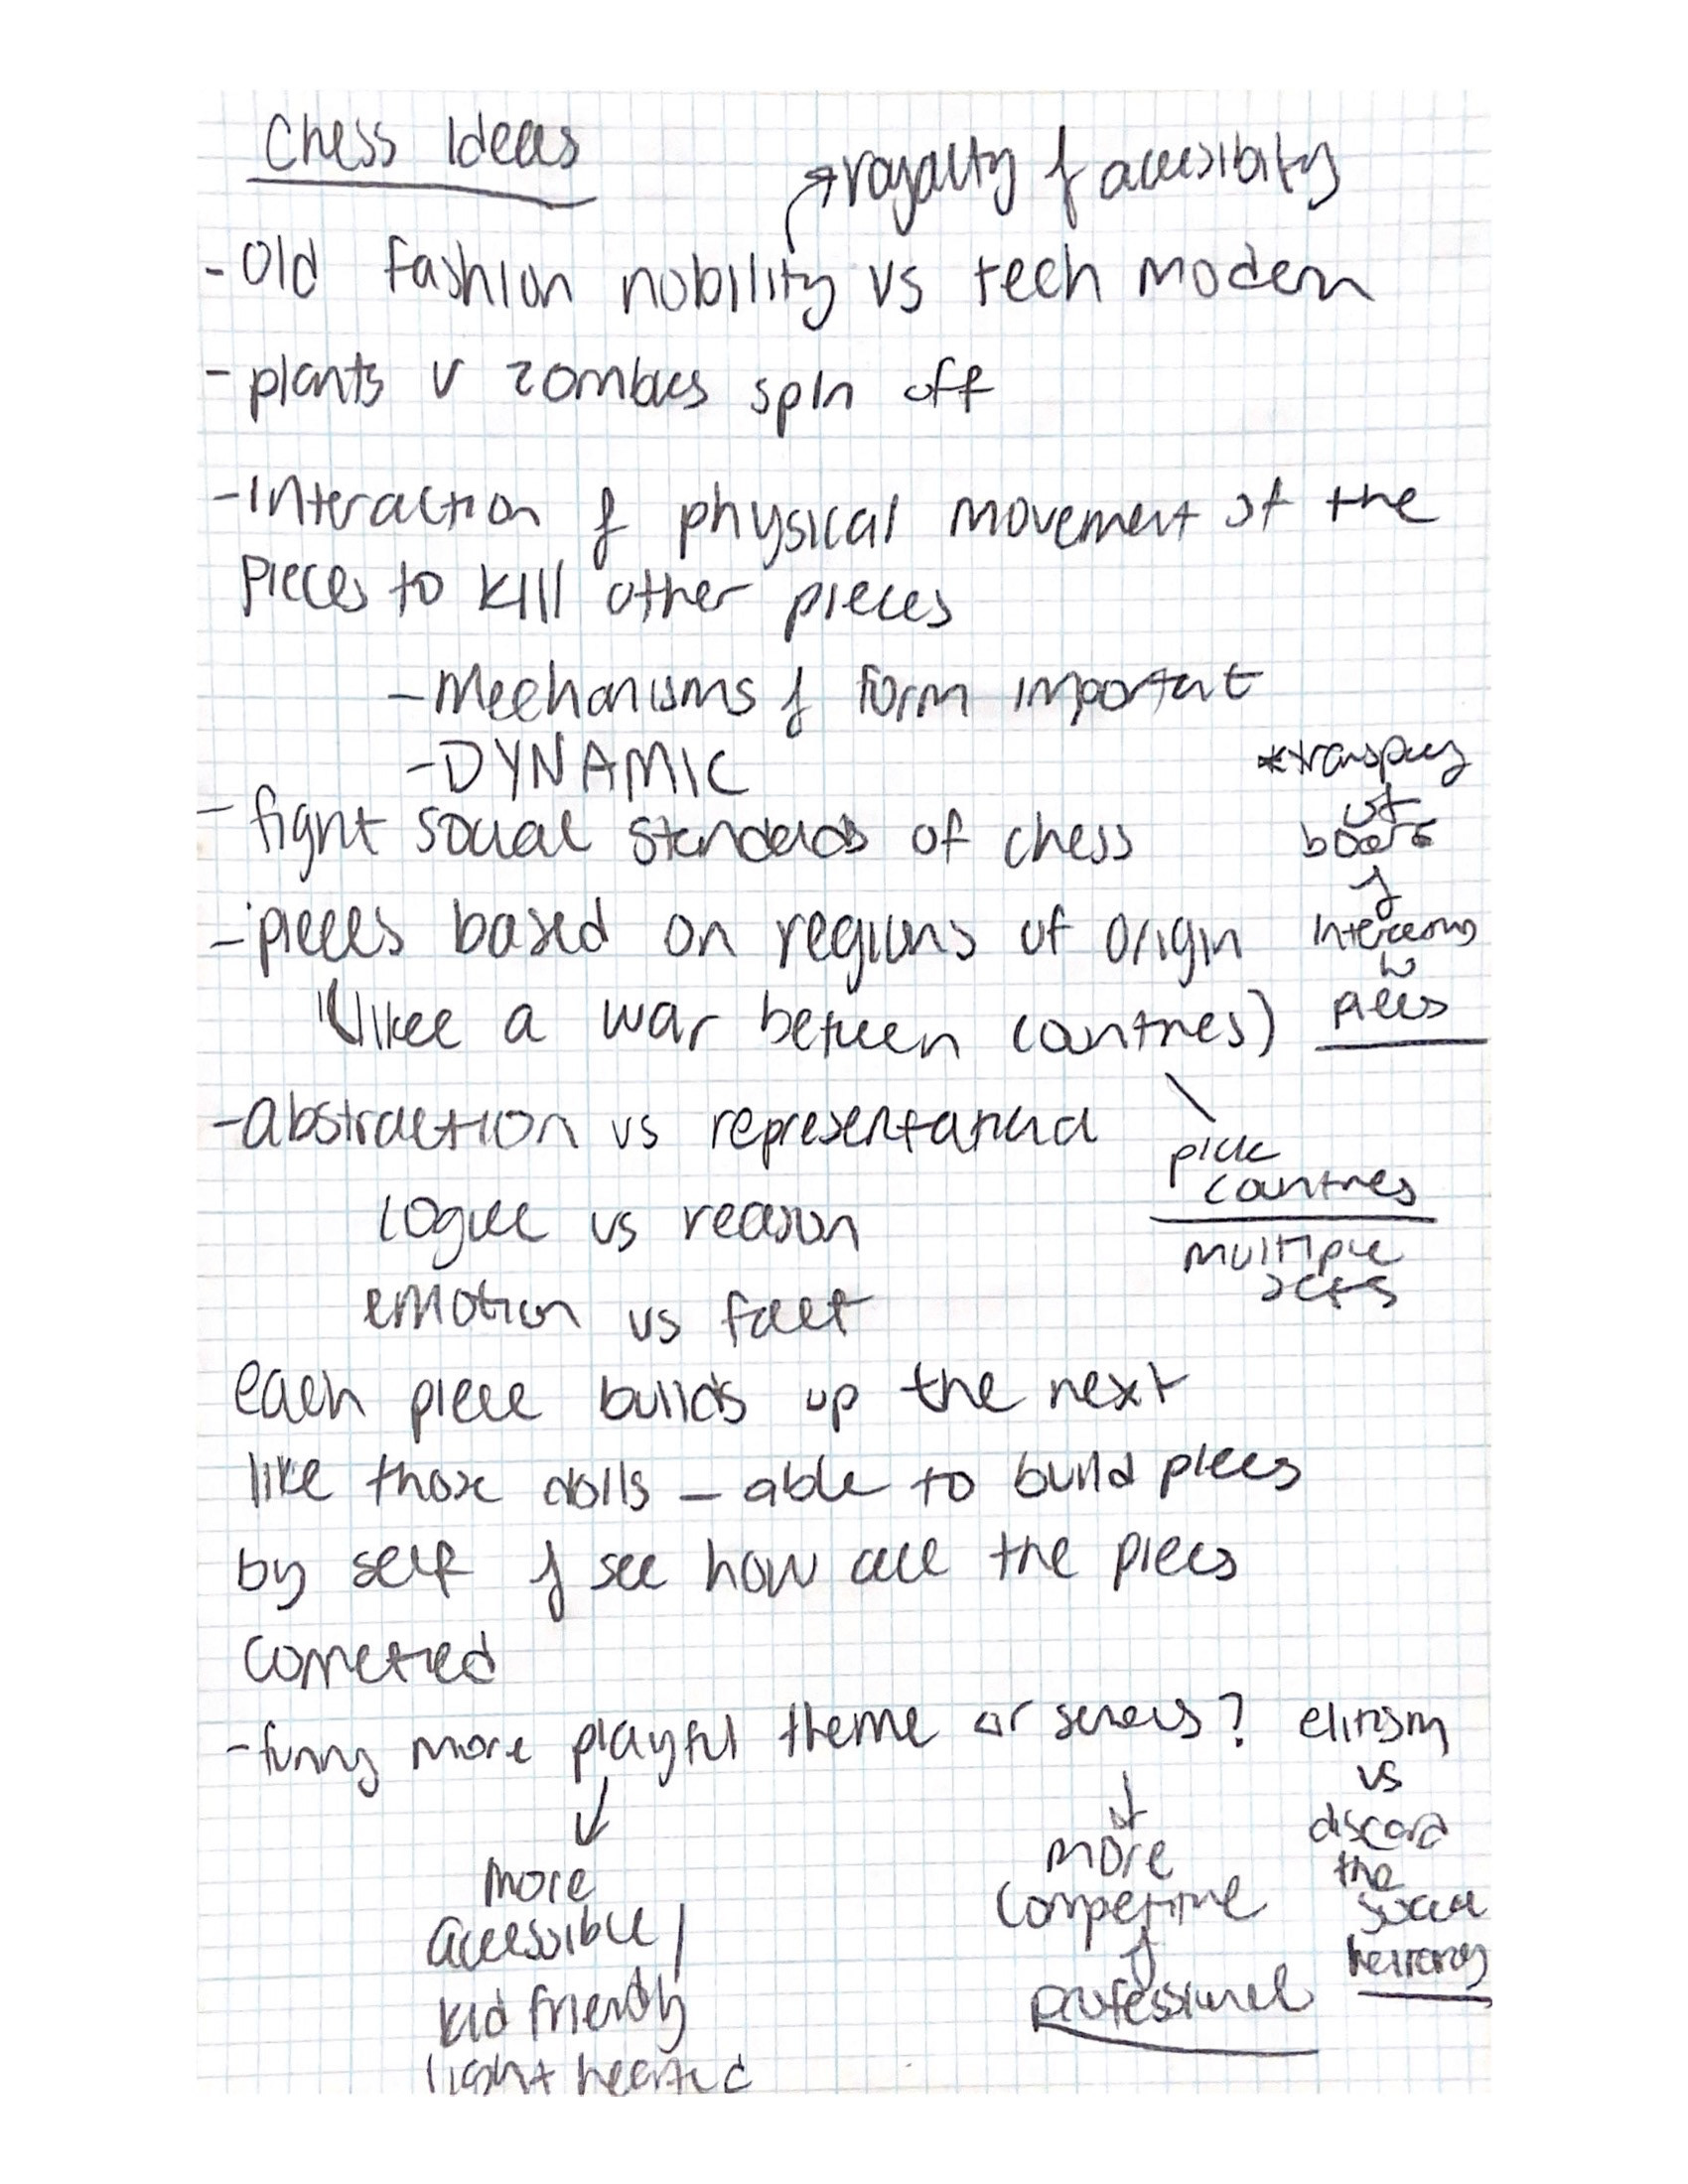 Chess Ideas
royalty & accesibility
- Old fashion nobility vs tech modern
- plants v zombies spin off
- Interaction & physical movement of the
pieces to kill other pieces
- Mechanisms & form important
- DYNAMIC
- fight social standards of chess
*
of
board
&
w
pieces
- pieces based on regions of origin
(like a war between countries)
pick
countries
multiple
sets
- abstraction vs representational
logic vs reason
emotion vs fact
each piece builds up the next
like those dolls - able to build pieces
by self & see how all the pieces
connected
- funny more playful theme or serious?
more
accessible /
kid friendly
light hearted
more
competitive
&
professional
elitism
vs
discard
the
social